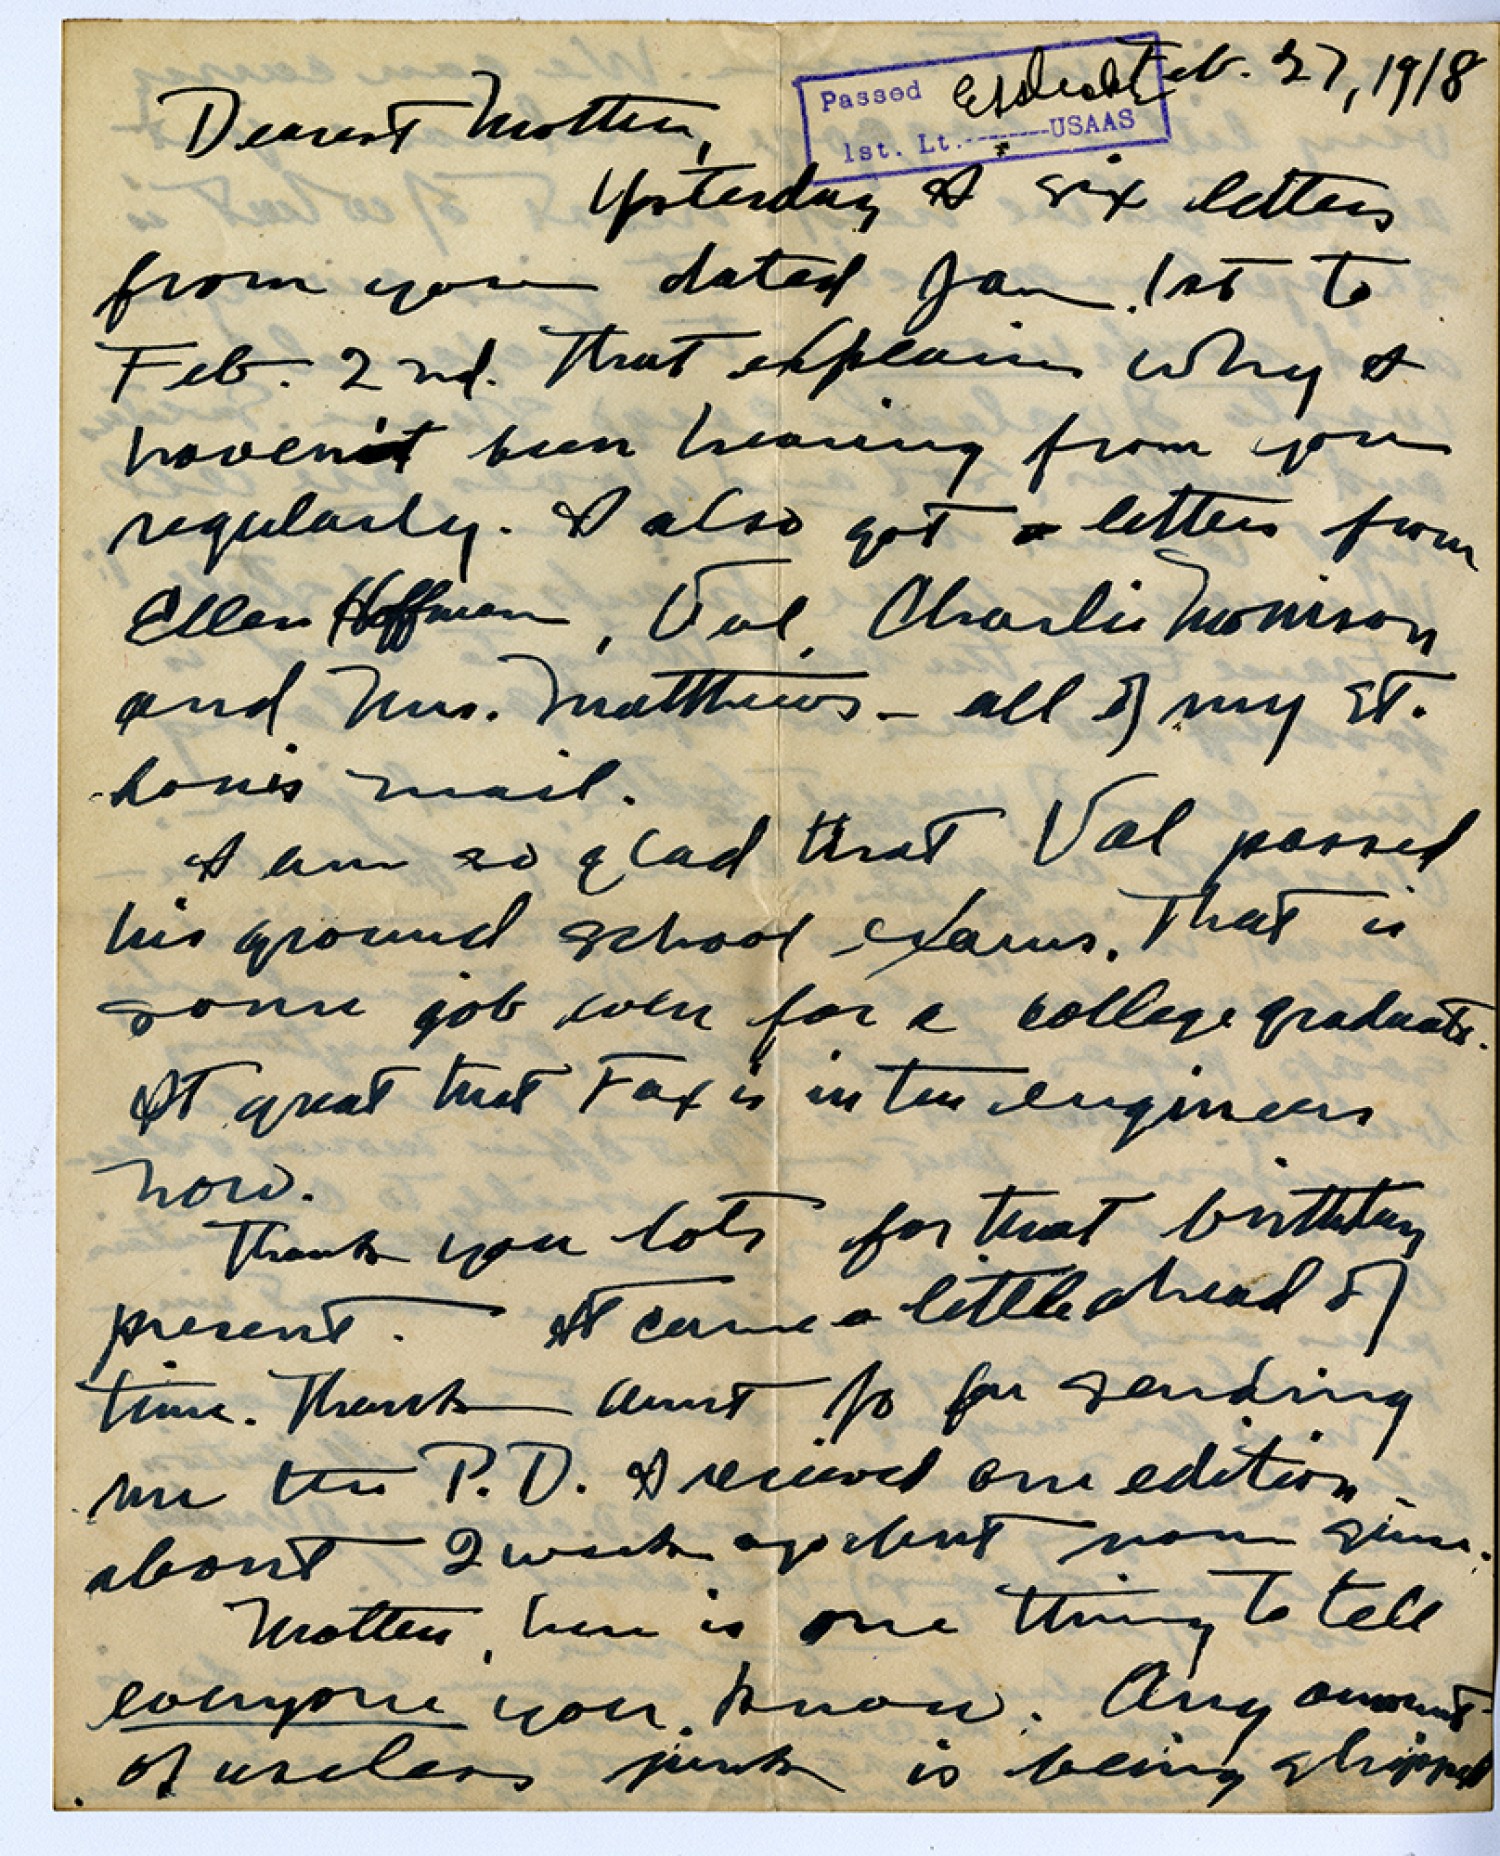 Feb. 27, 1918
Passed
1st. Lt.------USAAS
Dearest Mother,
Yesterday I six letters
from you dated Jan. 1st to
Feb. 2nd. That explains why I
haven't been hearing from you
regularly. I also got letters from
Ellen Hoffman, Val, Charlie Morrison
and Mrs. Matthews - all of my St.
Louis mail.
I am so glad that Val passed
his ground school exams. That is
some job even for a college graduate.
It great that Fox is in the engineers
now.
Thank you lots for that birthday
present. It came a little ahead of
time. Thank Aunt Jo for sending
me the P.D. I received one edition
about 2 weeks ago but none since.
Mother, here is one thing to tell
everyone you know. Any amount
of useless junk is being shipped